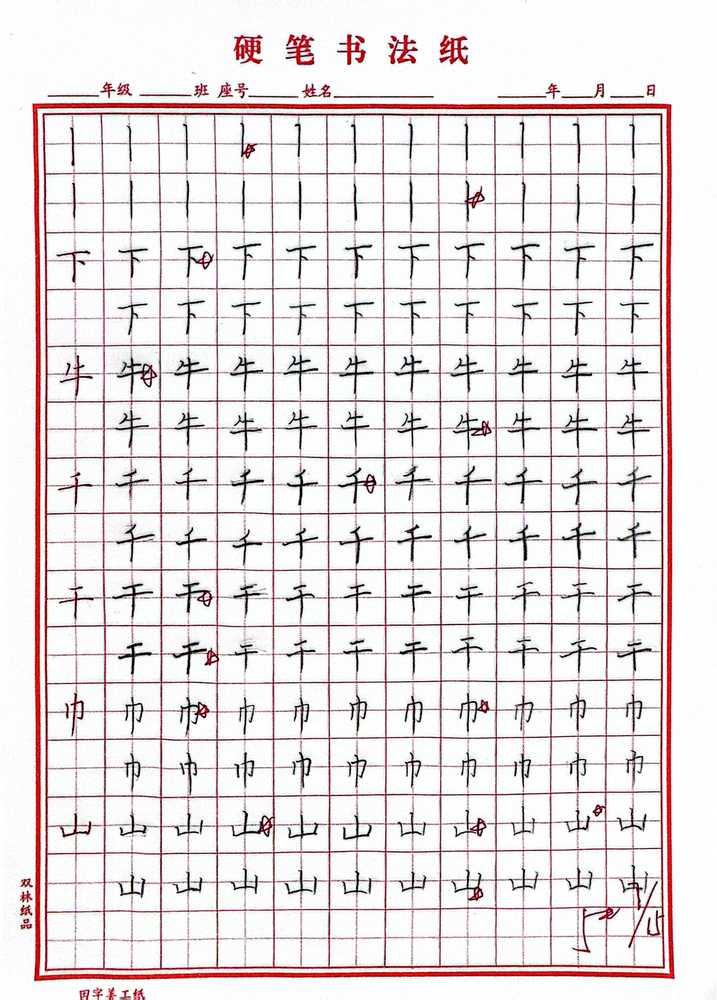 硬笔书法纸
____年级 ____班 座号____ 姓名________ ____年__月__日
丨丨丨丨丨丨丨丨丨丨丨
丨丨丨丨丨丨丨丨丨丨丨
下下下下下下下下下下下
下下下下下下下下下下
牛牛牛牛牛牛牛牛牛牛牛
牛牛牛牛牛牛牛牛牛牛
千千千千千千千千千千千
千千千千千千千千千千
干干干干干干干干干干干
干干干干干干干干干干
巾巾巾巾巾巾巾巾巾巾巾
巾巾巾巾巾巾巾巾巾巾
山山山山山山山山山山山
山山山山山山山山山山
双林纸品
田字美工纸